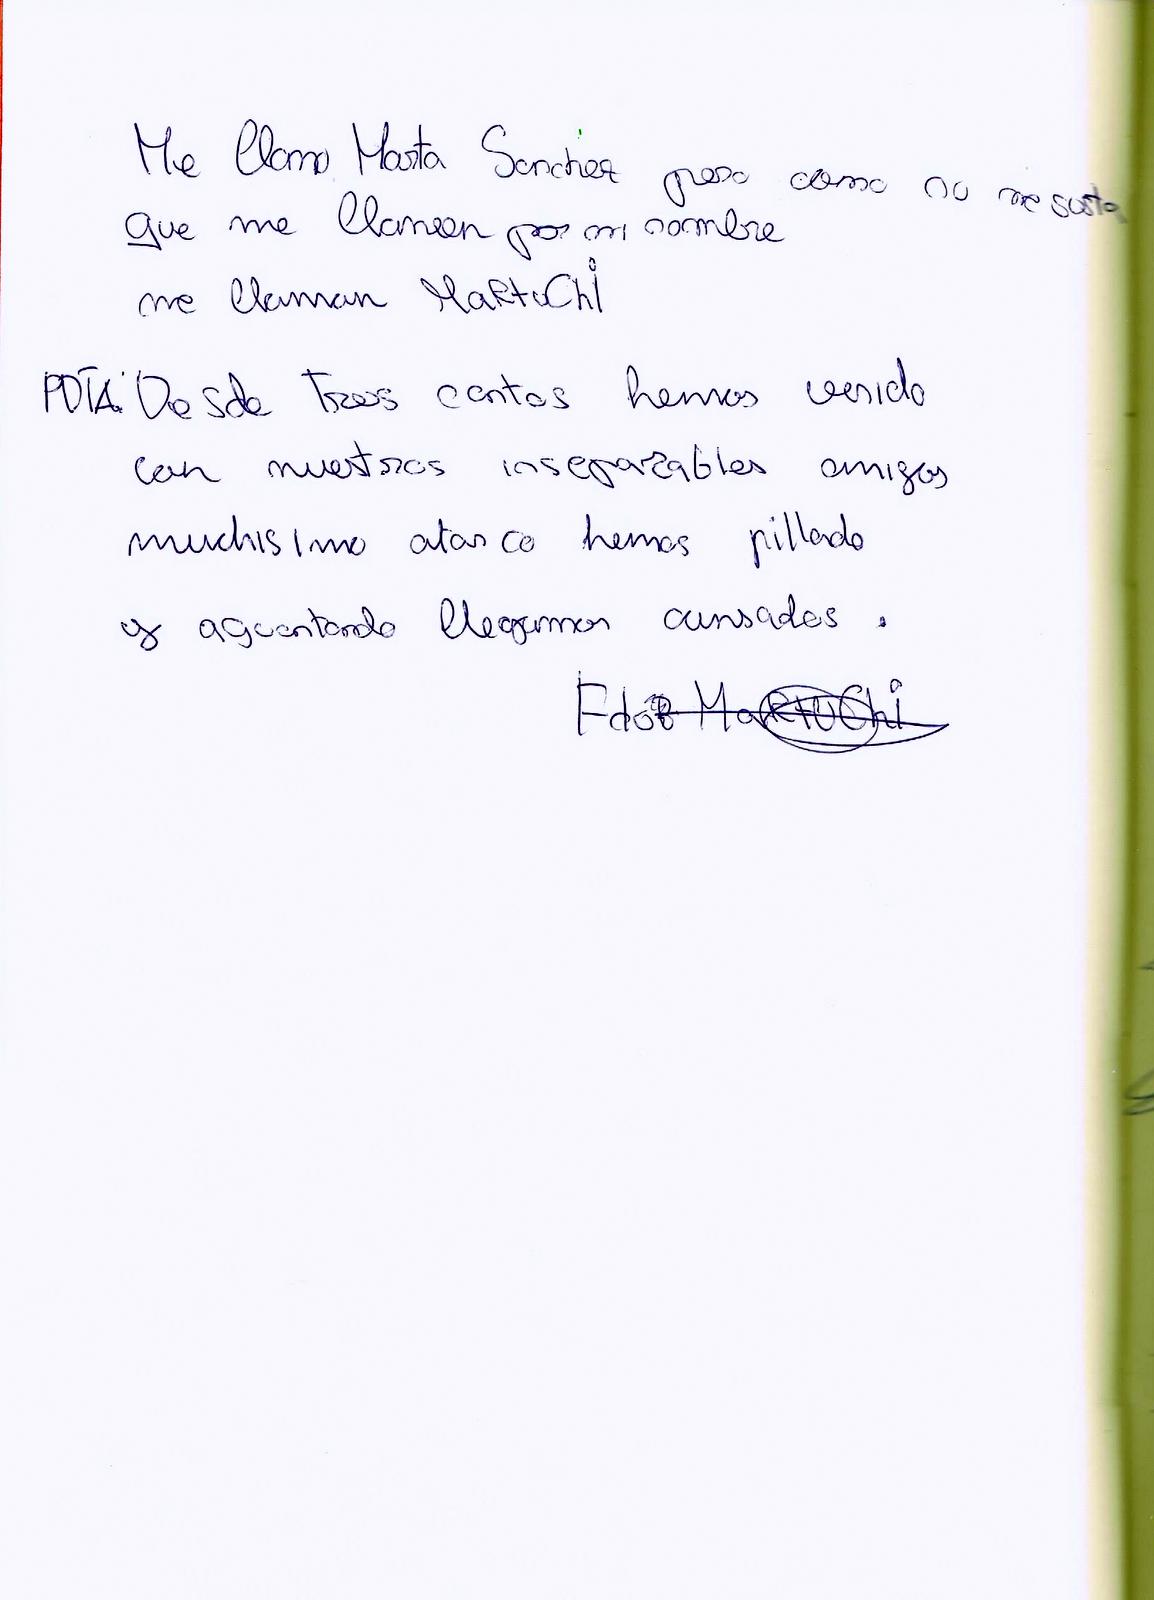 Me llamo Marta Sanchez pero como no me gusta
que me llamen por mi nombre
me llaman MaRtuChi
POTA: Desde Tres cantos hemos venido
con nuestros inseparables amigos
muchisimo atasco hemos pillado
y aguantando llegamos cansados.
Fdo: MaRtUChi